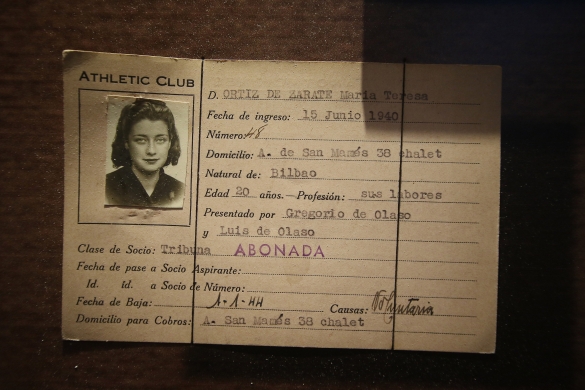 ATHLETIC CLUB
D. ORTIZ DE ZARATE María Teresa
Fecha de ingreso: 15 Junio 1940
Número: 48
Domicilio: A. de San Mamés 38 chalet
Natural de: Bilbao
Edad 20 años.- Profesión: sus labores
Presentado por Gregorio de Olaso
y Luis de Olaso
Clase de Socio: Tribuna ABONADA
Fecha de pase a Socio Aspirante:
Id. id. a Socio de Número:
Fecha de Baja: 1-1-44 Causas: Voluntaria
Domicilio para Cobros: A. San Mamés 38 chalet